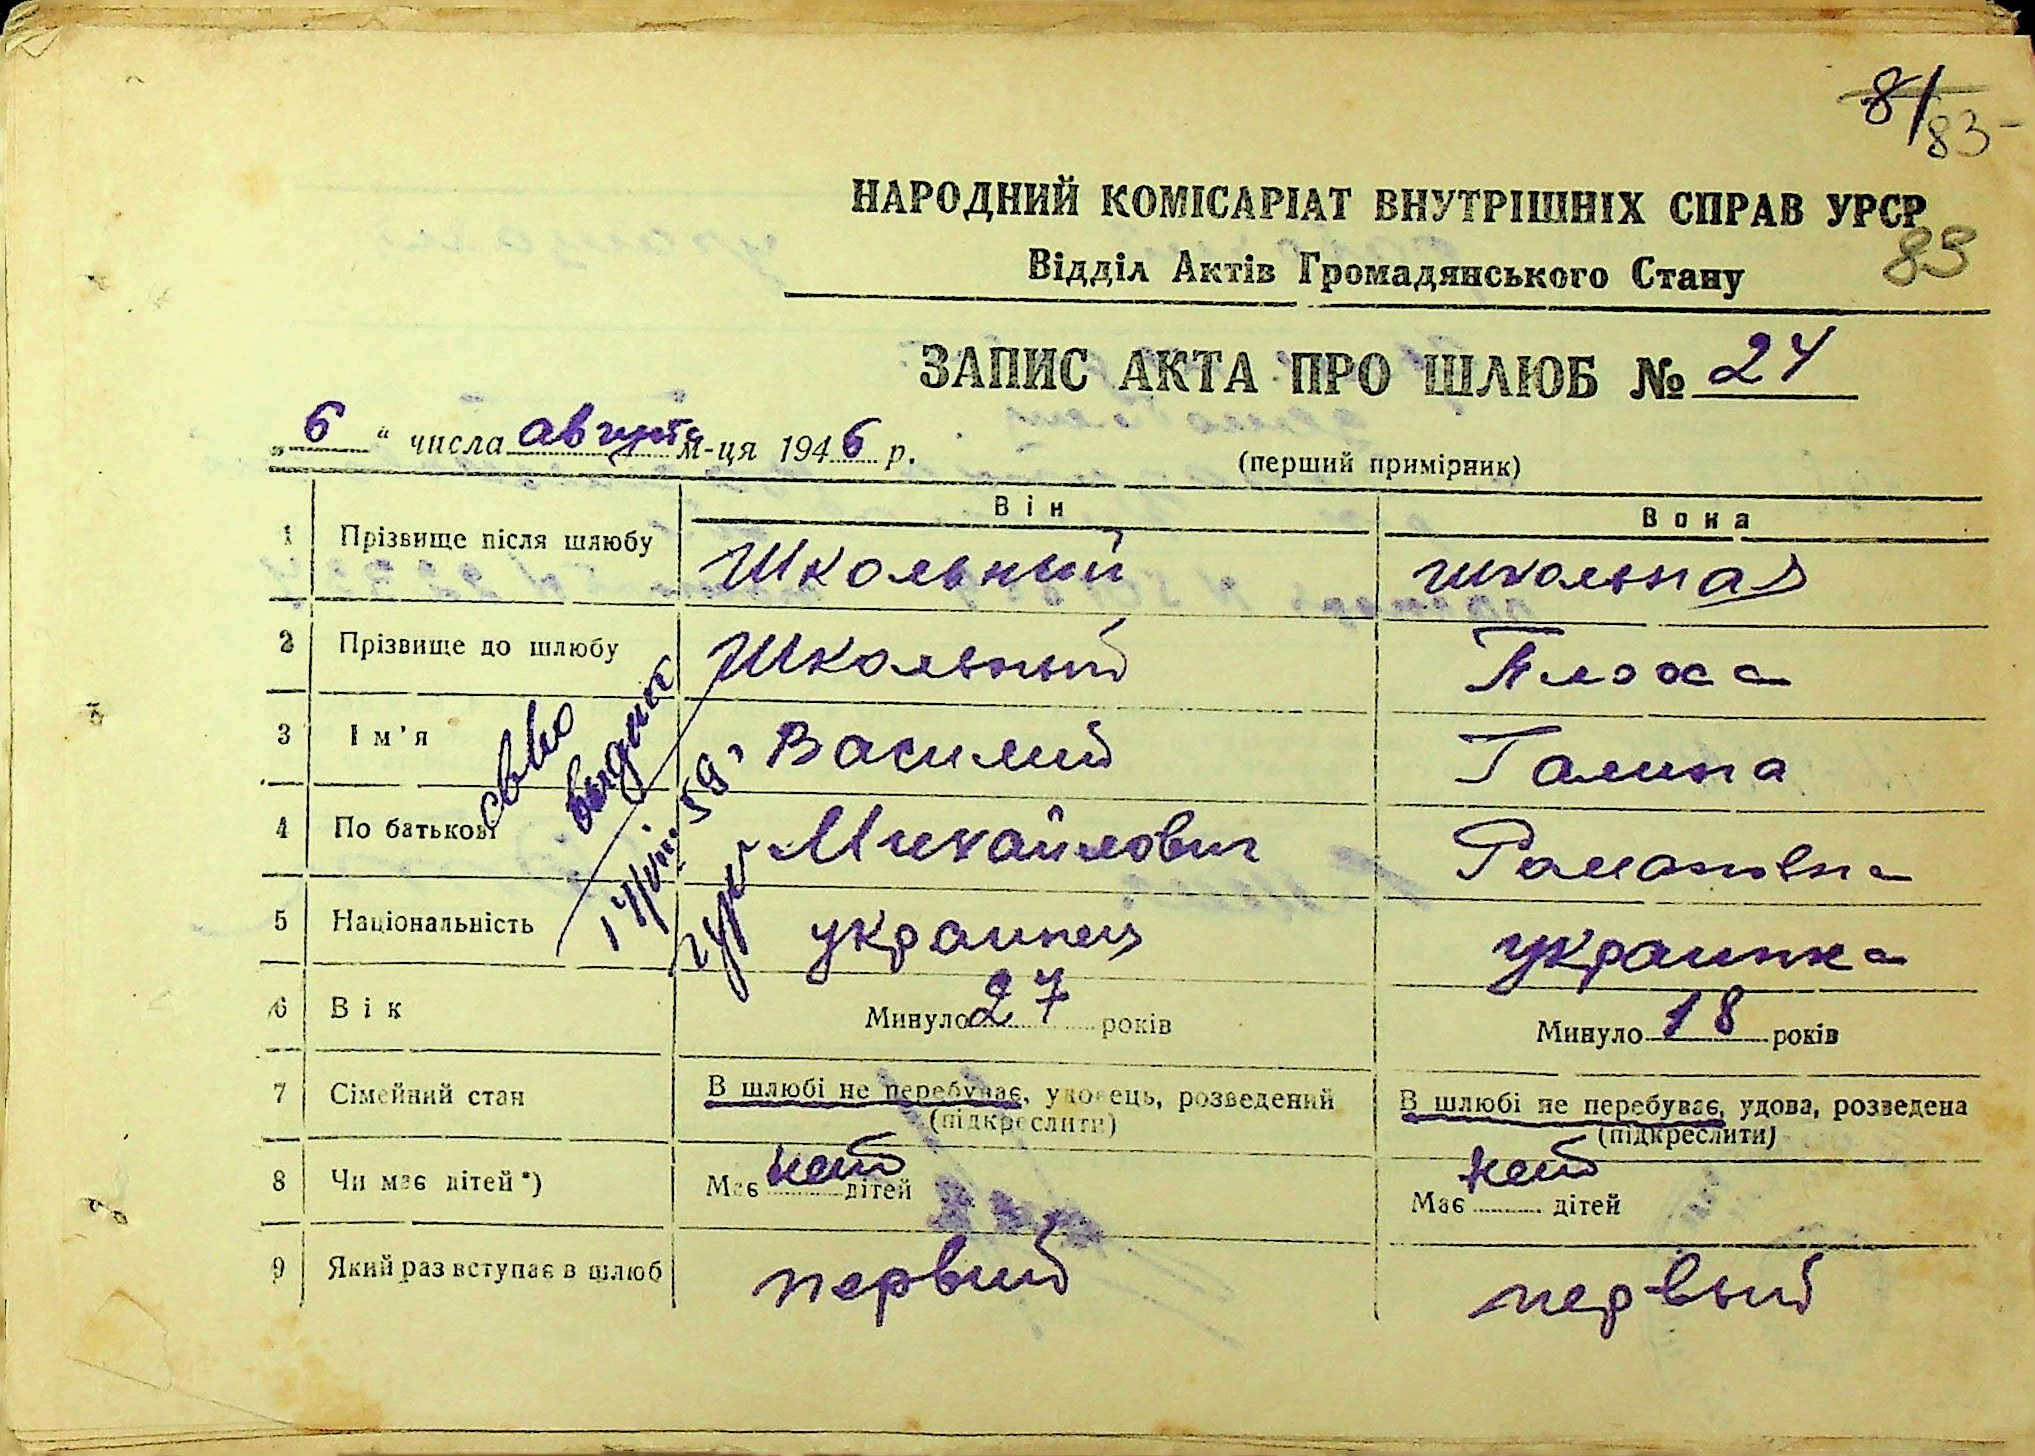 8/
83
НАРОДНИЙ КОМІСАРІАТ ВНУТРІШНІХ СПРАВ УРСР
83
Відділ Актів Громадянського Стану
ЗАПИС АКТА ПРО ШЛЮБ № 24
„6“ числа августа м-ця 1946 р.
(перший примірник)
Він Вона
1 Прізвище після шлюбу Школьный школьная
2 Прізвище до шлюбу Школьный Плоха
3 Ім'я Василий Галина
4 По батькові Михайлович Романовна
5 Національність украинец украинка
6 Вік Минуло 27 років Минуло 18 років
7 Сімейний стан В шлюбі не перебуває, удовець, розведений В шлюбі не перебуває, удова, розведена
(підкреслити) (підкреслити)
8 Чи має дітей*) Має нет дітей Має нет дітей
9 Який раз вступає в шлюб первый первый
св-во
выдано
59